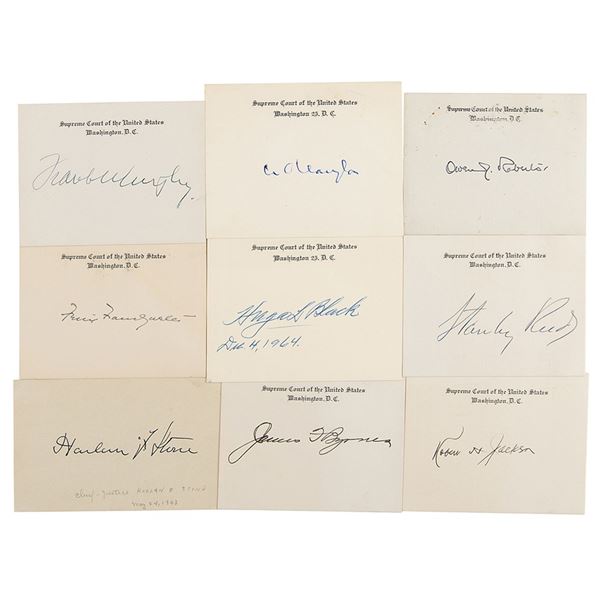 Supreme Court of the United States
Washington, D.C.
Frank Murphy
Supreme Court of the United States
Washington 25, D.C.
Wm O Douglas
Supreme Court of the United States
Washington, D.C.
Owen J. Roberts
Supreme Court of the United States
Washington, D.C.
Felix Frankfurter
Supreme Court of the United States
Washington 25, D.C.
Hugo L Black
Dec 4, 1964.
Supreme Court of the United States
Washington, D.C.
Stanley Reed
Harlan F. Stone
Chief-Justice HARLAN F STONE
May 24, 1943
Supreme Court of the United States
Washington, D.C.
James F Byrnes
Supreme Court of the United States
Washington, D.C.
Robert H. Jackson